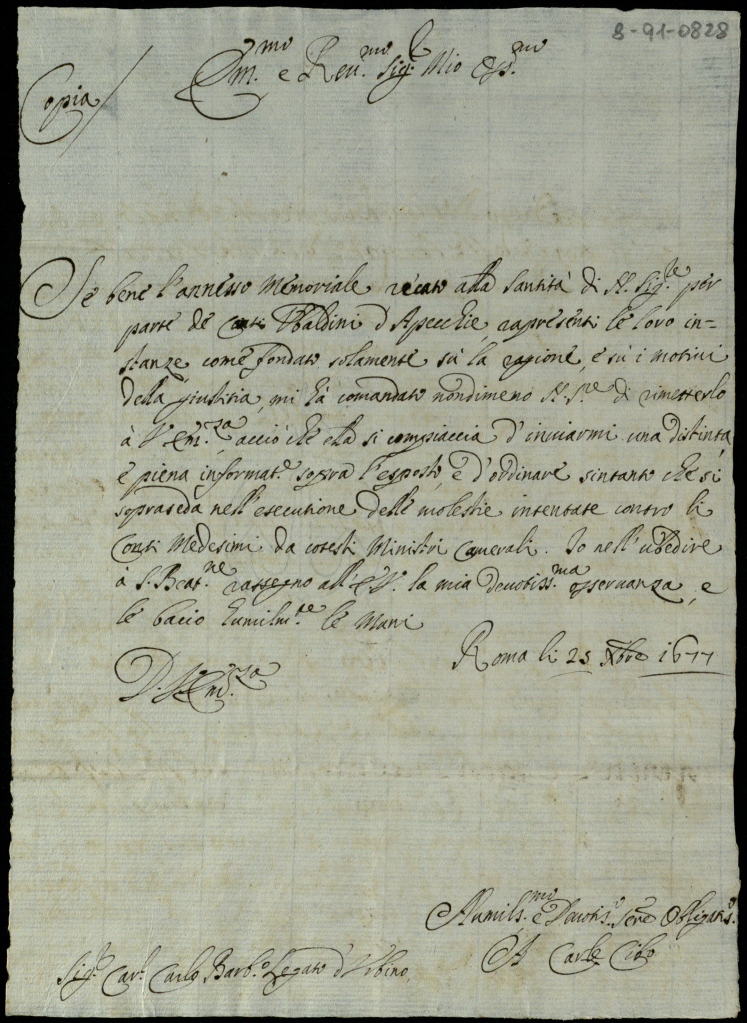 8-91-0828
Em.mo e Reu.mo Sig.r Mio Oss.mo
Copia
Se bene l'annesso Memoriale recato alla Santità di N. Sig.re per
parte de Conti Vbaldini d'Apecchie, rapresenti le loro in=
stanze come fondate solamente sù la ragione, e sù i motiui
della giustitia, mi hà comandato nondimeno N. S.re di rimetterlo
à V. Em.za acciò che ella si compiaccia d'inuiarmi una distinta,
e piena informat.e sopra l'esposto, e d'ordinare sintanto che si
sopraseda nell'esecutione delle molestie intentate contro li
Conti Medesimi da cotesti Ministri Camerali. Io nell'ubedire
à S. Beat.ne rassegno all'E.V. la mia deuotiss.ma osseruanza, e
le bacio humilm.te le Mani
Roma li 25 Xbre 1677
D. V. Em.za
Humils.mo e Deuotis.o Ser.e Obligatis.o
Il Car.le Cibo
Sig.r Car.l Carlo Barb.o Legato d'Vrbino